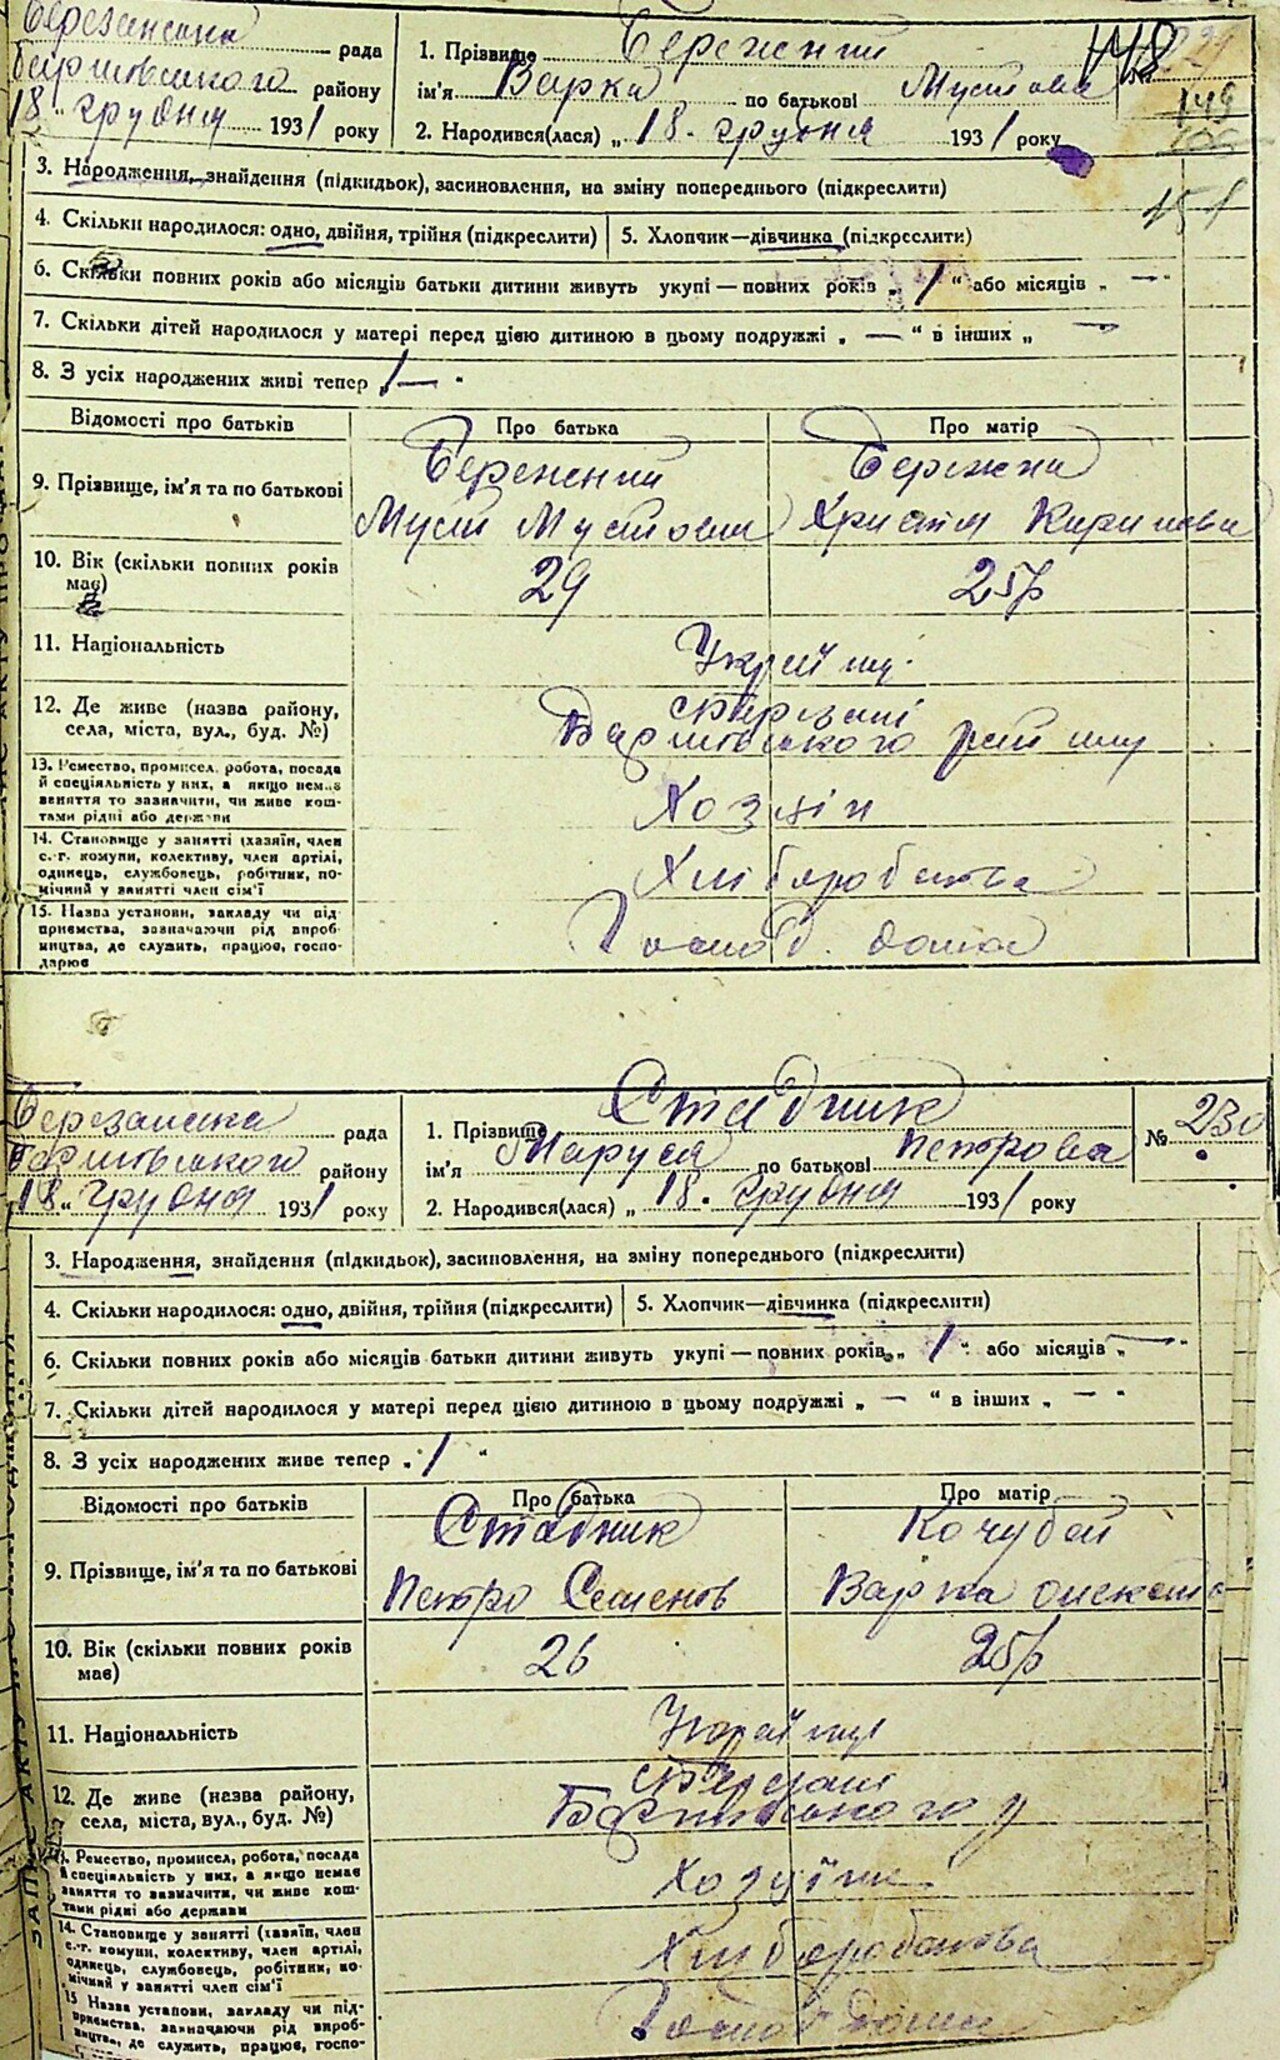 Березанська рада
Баришівського району
18 „ грудня 1931 року
1. Прізвище Бережний
ім'я Варка по батькові Мусіова
2. Народився(лася) „ 18. грудня 1931 року
№
148
149
151
3. Народження, знайдення (підкидьок), засиновлення, на зміну попереднього (підкреслити)
4. Скільки народилося: одно, двійня, трійня (підкреслити) 5. Хлопчик—дівчинка (підкреслити)
6. Скільки повних років або місяців батьки дитини живуть укупі — повних років „ 1 “ або місяців „ — “
7. Скільки дітей народилося у матері перед цією дитиною в цьому подружжі „ — “ в інших „ —
8. З усіх народжених живі тепер „ 1 — “
Відомості про батьків Про батька Про матір
Бережний Бережна
9. Прізвище, ім'я та по батькові
Мусій Мусіови Христя
10. Вік (скільки повних років має) 29 25р
11. Національність Україн.
12. Де живе (назва району, с Березані
села, міста, вул., буд. №) Баришівського району
13. Ремество, промисел, робота, посада
й спеціяльність у них, а якщо немає
заняття то зазначити, чи живе кош-
тами рідні або держави
Хозяїн
14. Становище у занятті (хазяїн, член
с.-г. комуни, колективу, член артілі,
одинець, службовець, робітник, по-
мічний у занятті член сім'ї
Хліборобства
15. Назва установи, закладу чи під-
приємства, зазначаючи рід вироб-
ництва, де служить, працює, госпо-
дарює
Господ. дома
Березанська рада
Баришівського району
18 „ грудня 1931 року
1. Прізвище Стадник
ім'я Маруся по батькові Петрова
2. Народився(лася) „ 18. грудня 1931 року
№ 230
3. Народження, знайдення (підкидьок), засиновлення, на зміну попереднього (підкреслити)
4. Скільки народилося: одно, двійня, трійня (підкреслити) 5. Хлопчик—дівчинка (підкреслити)
6. Скільки повних років або місяців батьки дитини живуть укупі — повних років „ 1 “ або місяців „ — “
7. Скільки дітей народилося у матері перед цією дитиною в цьому подружжі „ — “ в інших „ — “
8. З усіх народжених живе тепер „ 1 “
Відомості про батьків Про батька Про матір
Стадник Кочубей
9. Прізвище, ім'я та по батькові
Петро Семенов Варка
10. Вік (скільки повних років має) 26 25р
11. Національність Україн
12. Де живе (назва району, с Березані
села, міста, вул., буд. №) Баришівського р
13. Ремество, промисел, робота, посада
й спеціяльність у них, а якщо немає
заняття то зазначити, чи живе кош-
тами рідні або держави
14. Становище у занятті (хазяїн, член
с.-г. комуни, колективу, член артілі,
одинець, службовець, робітник, по-
мічний у занятті член сім'ї
Хліборобства
15 Назва установи, закладу чи під-
приємства, зазначаючи рід вироб-
ництва, де служить, працює, госпо-
Господ дома